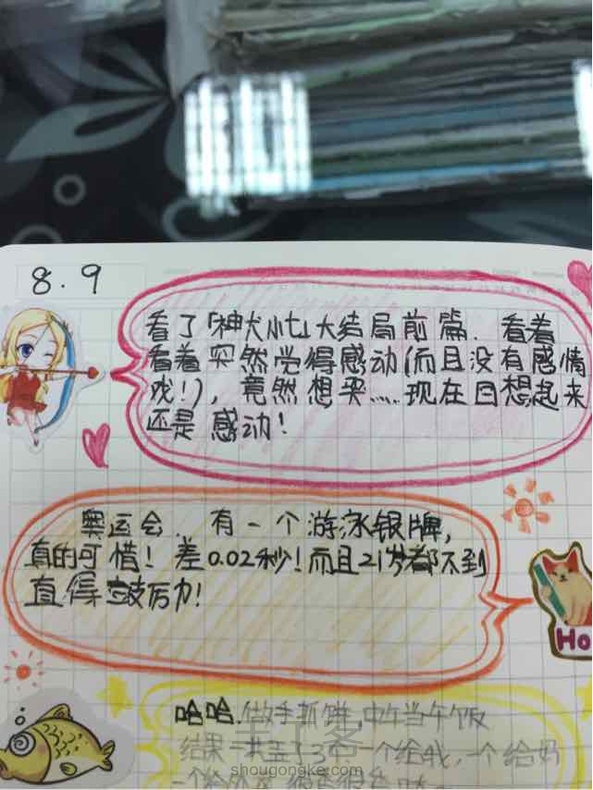 8.9
看了「神犬小七」大结局前篇. 看着
看着突然觉得感动(而且没有感情
戏!), 竟然想哭..... 现在回想起来
还是感动!
奥运会. 有一个游泳银牌,
真的可惜! 差0.02秒! 而且21岁都不到
直得鼓厉力!
Ho
哈哈. 做手抓饼, 中午当午饭
结果一共三个, 一个给我, 一个给妈
shougongke.com